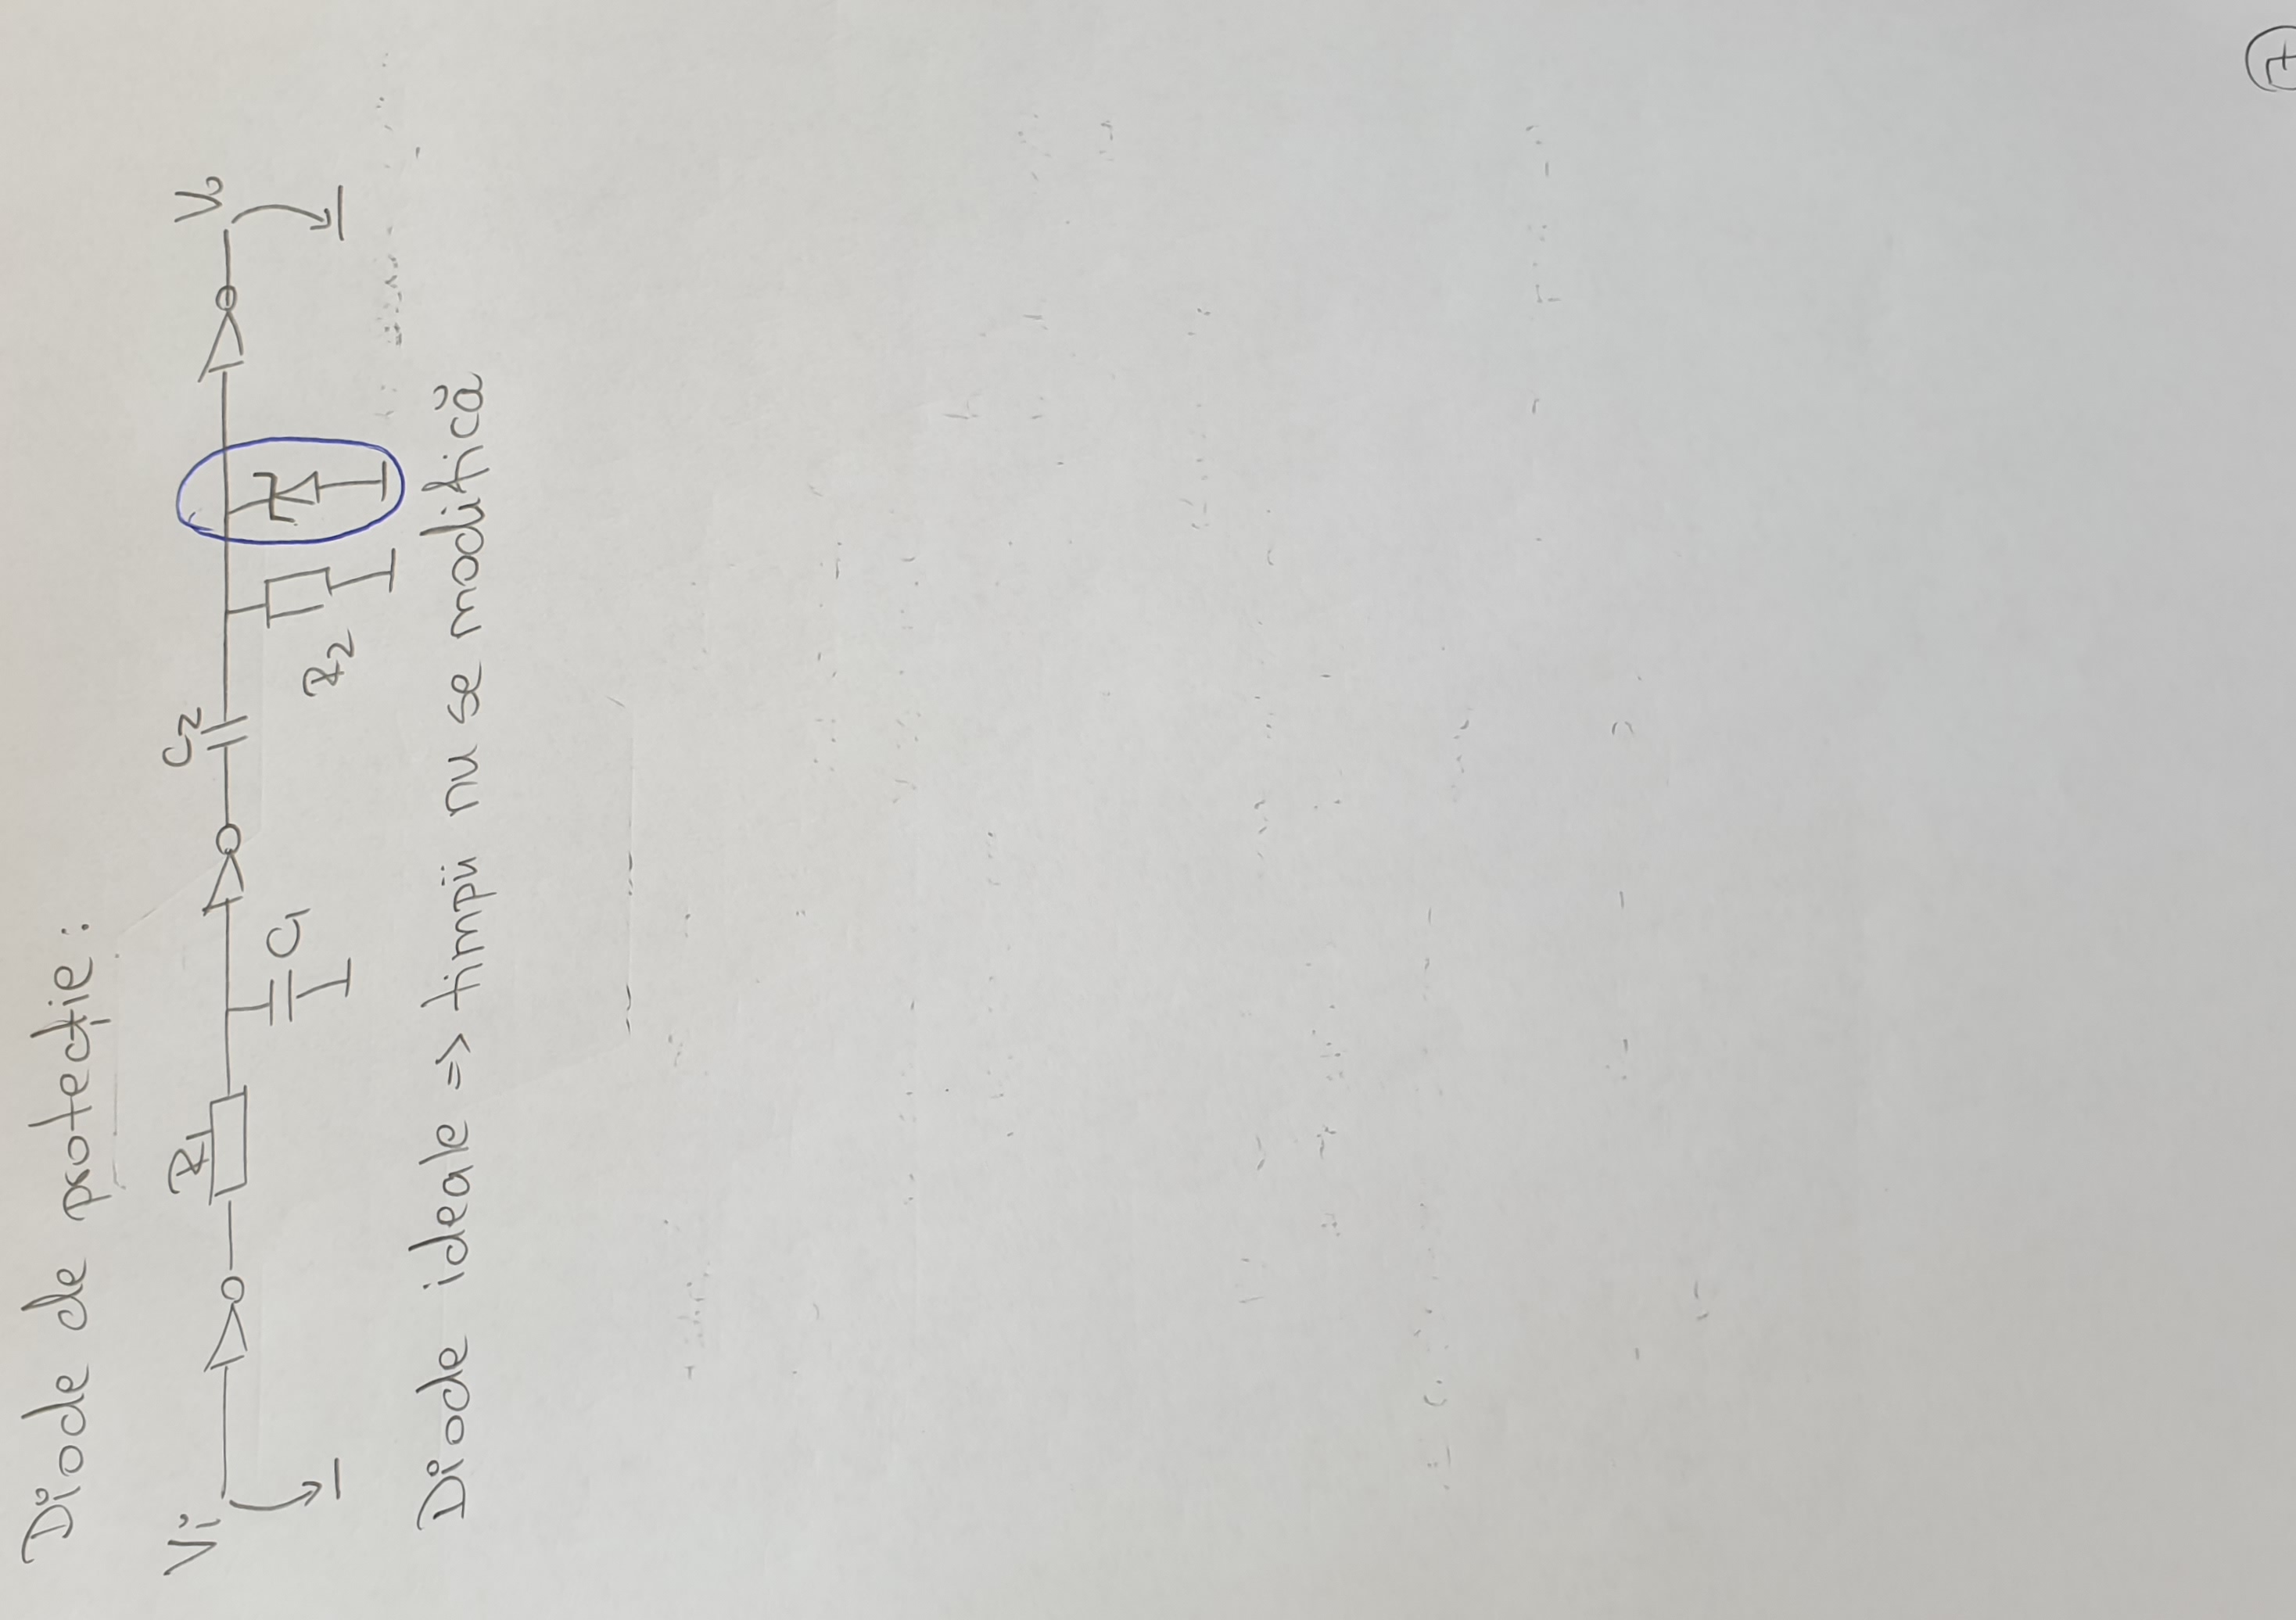 Diode de protecție:
Vi R1 C2 Vo
C1 R2
Diode ideale => timpii nu se modifică
7